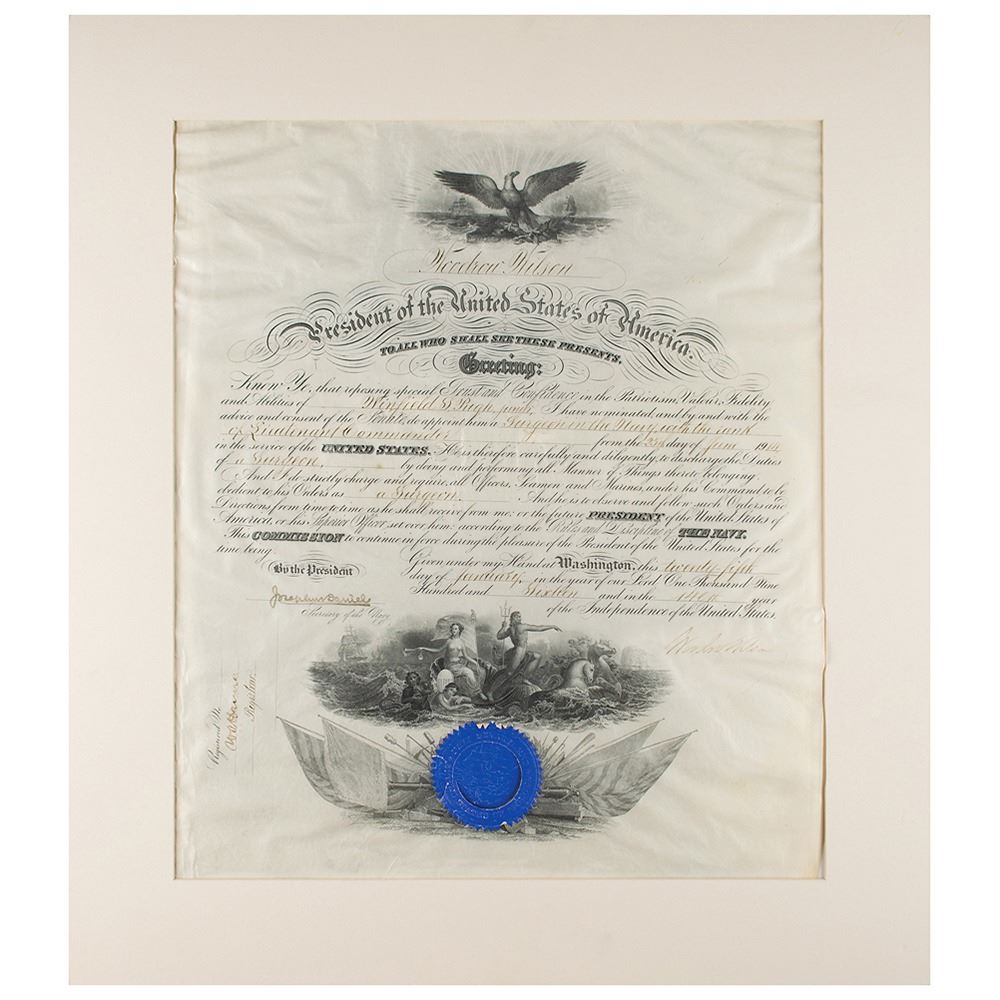 Woodrow Wilson
President of the United States of America.
TO ALL WHO SHALL SEE THESE PRESENTS,
Greeting:
Know Ye, that reposing special Trust and Confidence in the Patriotism Valour, Fidelity
and Abilities of Winfield S. Pugh, junr, I have nominated, and by and with the
advice and consent of the Senate, do appoint him a Surgeon in the Navy, with the rank
of Lieutenant Commander from the day of June 19
in the service of the UNITED STATES. He is therefore carefully and diligently, to discharge the Duties
of a Surgeon, by doing and performing all Manner of Things thereto belonging.
And I do strictly charge and require, all Officers, Seamen and Marines, under his Command to be
obedient to his Orders as a Surgeon. And he is to observe and follow such Orders and
Directions from time to time as he shall receive from me; or the future PRESIDENT of the United States of
America, or his Superior Officer set over him; according to the Rules and Discipline of THE NAVY.
This COMMISSION to continue in force during the pleasure of the President of the United States for the
time being.
By the President
Josephus Daniels
Secretary of the Navy
Given under my Hand at Washington, this twenty fifth
day of January, in the year of our Lord One Thousand Nine
Hundred and Sixteen and in the 140th year
of the Independence of the United States.
Woodrow Wilson
Registered No.
Register.